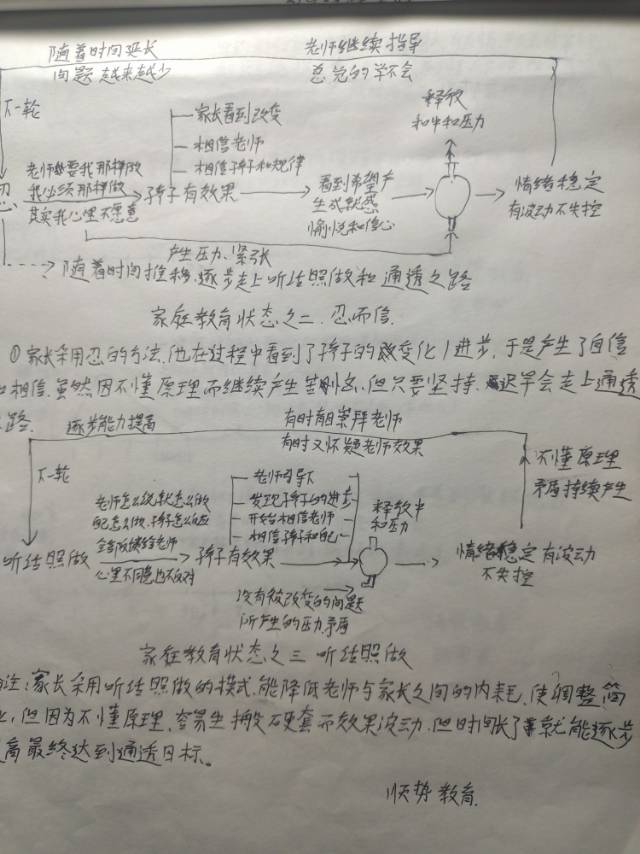 随着时间延长
问题越来越少
老师继续指导
总觉的学不会
下一轮
家长看到改变
相信老师
相信孩子和规律
释放
和中和压力
老师要我那样做
我必须那样做
其实我心里不愿意
忍
孩子有效果
看到希望产
生成就感
愉悦和信心
情绪稳定
有波动不失控
产生压力、紧张
随着时间推移,逐步走上听话照做和通透之路
家庭教育状态之二.忍而信.
①家长采用忍的方法,他在过程中看到了孩子的改变化/进步,于是产生了自信
和相信.虽然因不懂原理而继续产生,但只要坚持,迟早会走上通透
路.
逐步能力提高
有时崇拜老师
有时又怀疑老师效果
下一轮
不懂原理
矛盾持续产生
老师怎么说就怎么做
自己怎么做,孩子怎么反应
全部反馈给老师
心里不同意也不反对
老师引导下
发现孩子的进步
开始相信老师
相信孩子和自己
释放中
和压力
听话照做
孩子有效果
情绪稳定有波动
不失控
没有被改变的问题
所产生的压力.矛盾
家庭教育状态之三 听话照做
注:家长采用听话照做的模式.能降低老师与家长之间的内耗,使调整简
,但因为不懂原理,容易生搬硬套而效果波动.但时间长了就能逐步
高最终达到通透目标。
顺势教育.